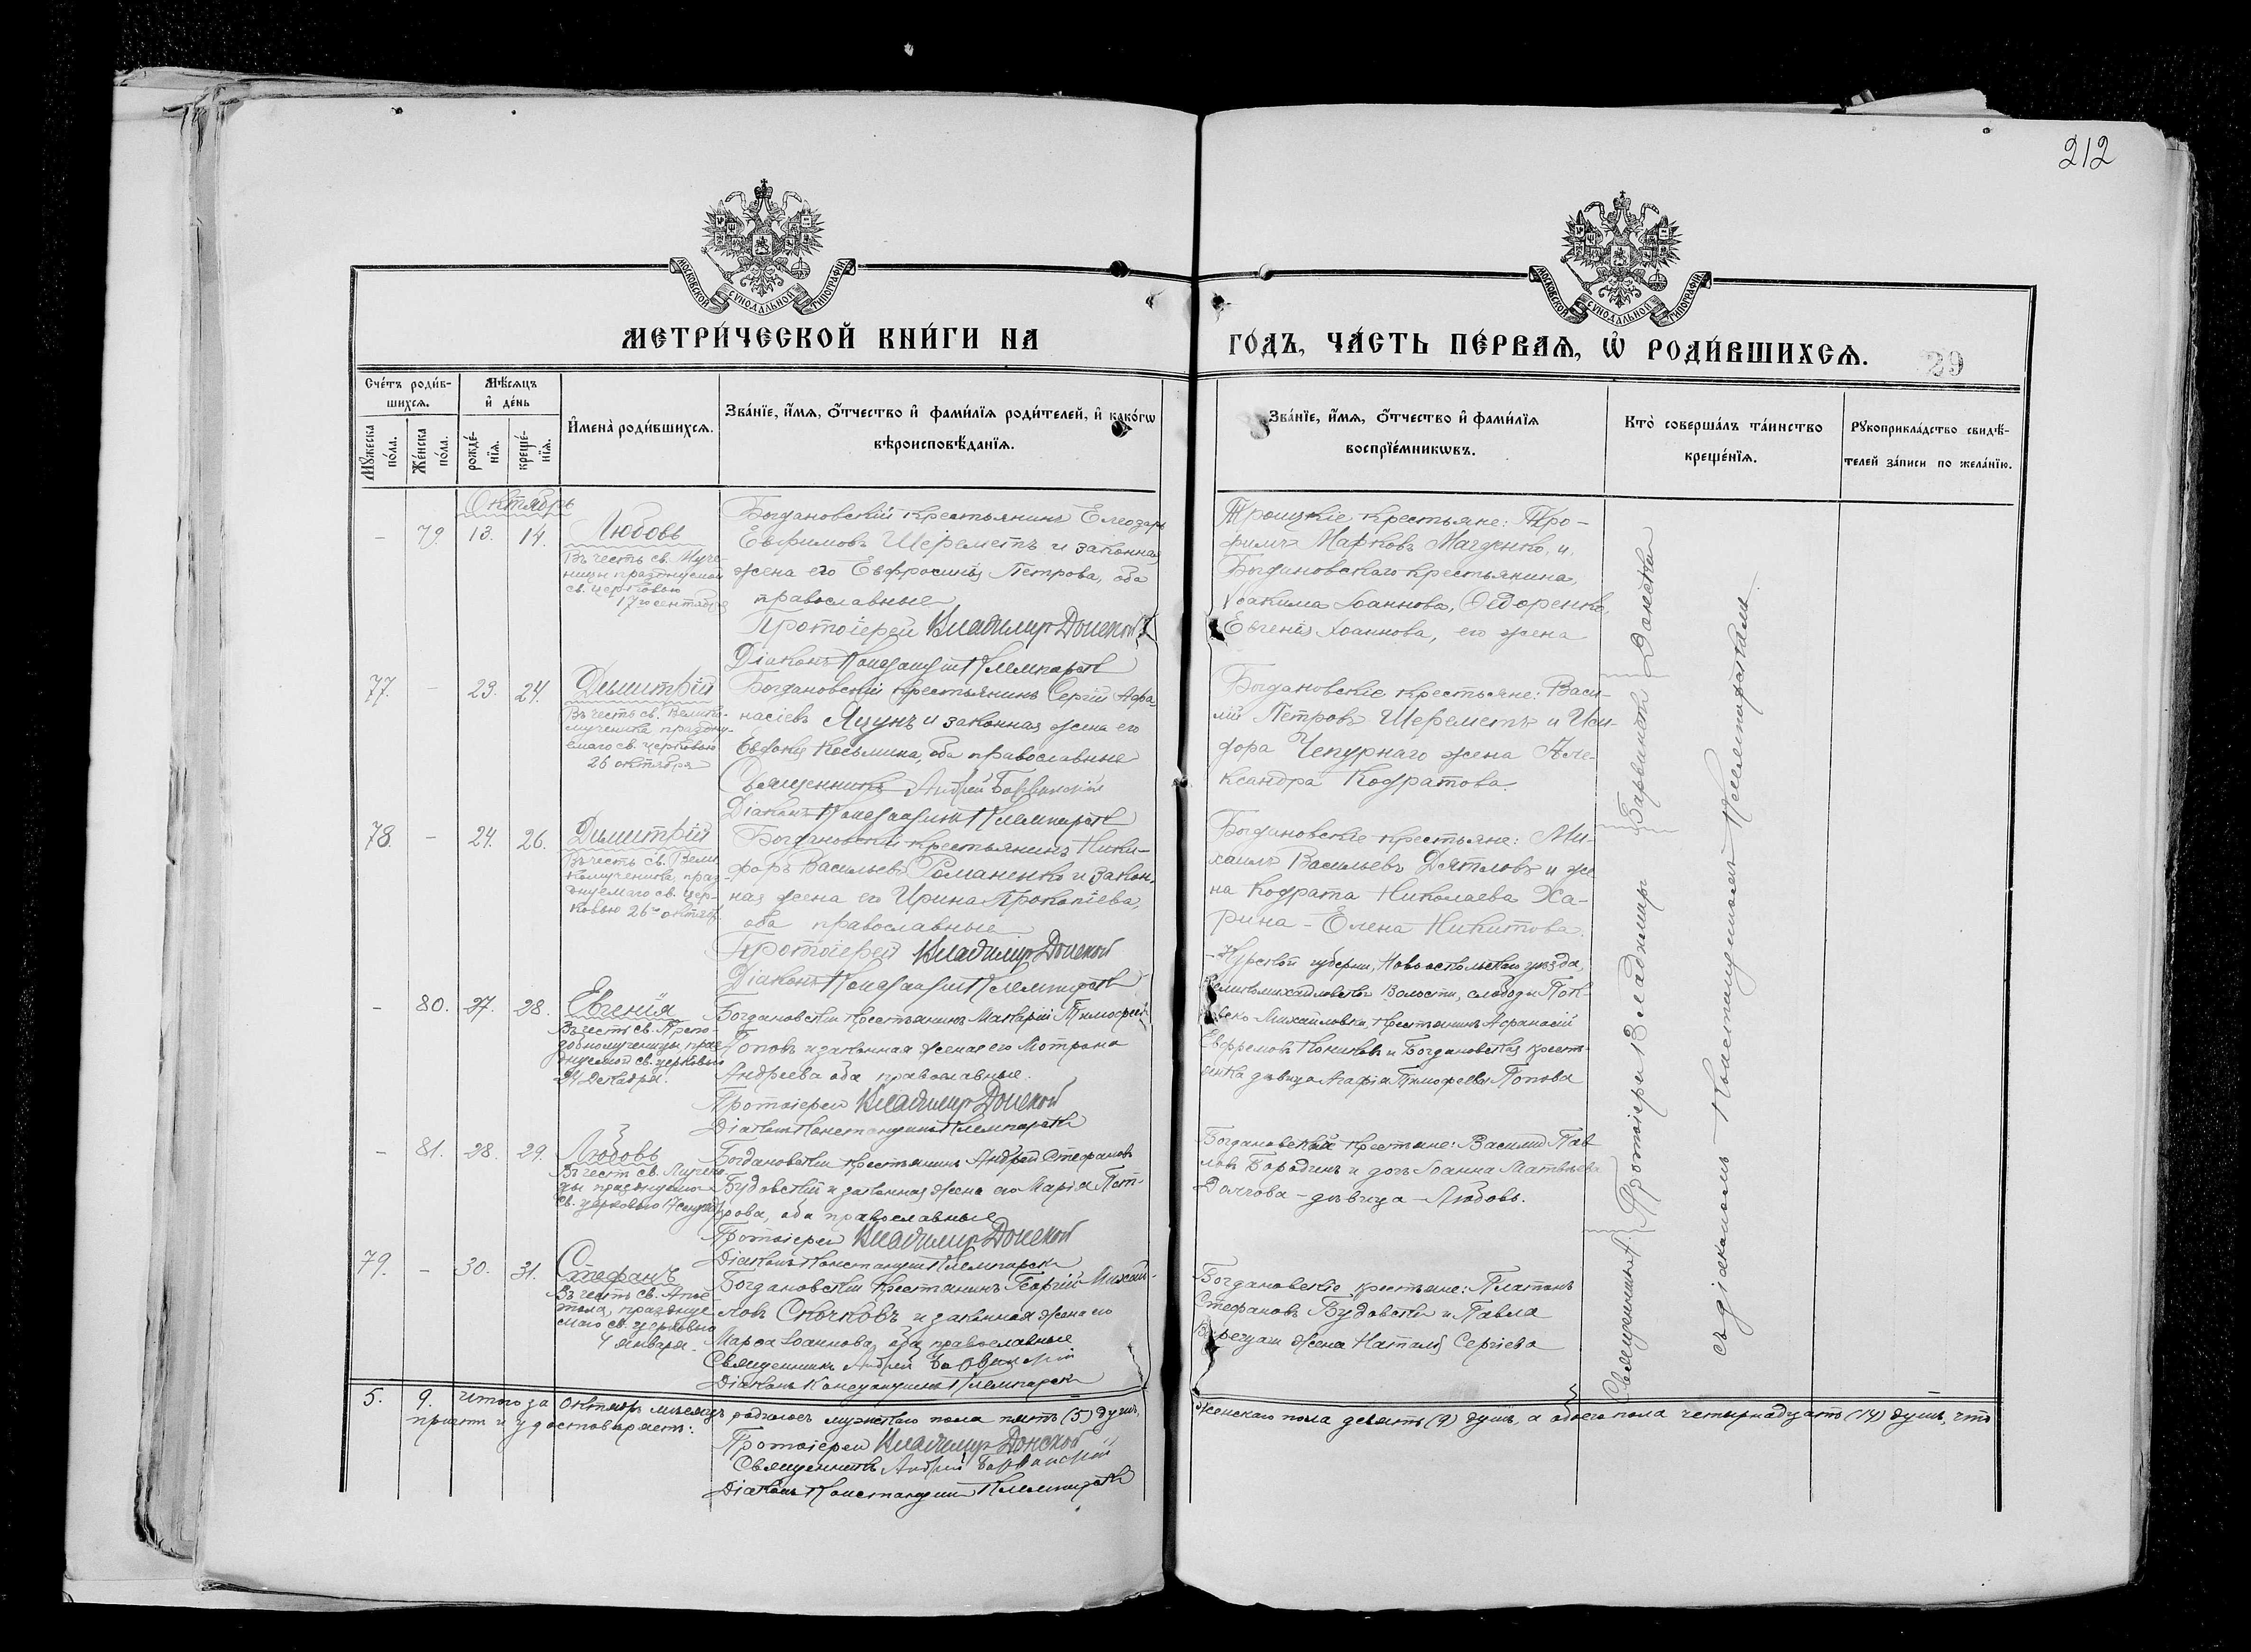 212
МОСКОВСКОЙ СУНОДАЛЬНОЙ ТИПОГРАФІИ
МОСКОВСКОЙ СУНОДАЛЬНОЙ ТИПОГРАФІИ
МЕТРИ́ЧЕСКОЙ КНИ́ГИ НА
ГО́ДЪ, ЧА́СТЬ ПЕ́РВАЯ, Ѽ РОДИ́ВШИХСЯ.
29
Сче́тъ роди́в-
шихся.
Мѣ́сяцъ
и де́нь
Мꙋ́жеска
по́ла.
Же́нска
по́ла.
рожде́-
нїя.
креще́-
нїя.
Имена̀ роди́вшихся.
Зва́нїе, и́мя, о́тчество и фами́лїя роди́телей, и како́гѡ
вѣроисповѣ́данїя.
Зва́нїе, и́мя, о́тчество и фами́лїя
воспрїе́мникѡвъ.
Кто̀ соверша́лъ та́инство
креще́нїя.
Рꙋкоприкла́дство свидѣ́-
телей за́писи по жела́нїю.
Октябрь
- 79. 13. 14. Любовь
Въ честь св. Муче-
ницы празднуемой
св. церковью
17го сентября
Богдановскій крестьянинъ Елеозаръ
Евфимовъ Шереметъ и законная
жена его Евфросинія Петрова, оба
православные
Протоіерей Владиміръ Донской
Діаконъ Константинъ Клемпарскій
Троицкіе крестьяне: Тро-
фимъ Марковъ Магденко, и
Богдановскаго крестьянина,
Іоакима Іоаннова, Ѳедоренко,
Евгенія Іоаннова, его жена
77. - 23. 24. Димитрій
Въ честь св. Велико-
мученика праздну-
емаго св. церковью
26 октября
Богдановскій крестьянинъ Сергій Афа-
насіевъ Яцунъ и законная жена его
Евдокія Косьмина, оба православные
Священникъ Андрей Барвинскій
Діаконъ Константинъ Клемпарскій
Богдановскіе крестьяне: Васи-
лій Петровъ Шереметъ и Иси-
дора Чепурнаго жена Але-
ксандра Кодратова.
78. - 24. 26. Димитрій
Въ честь св. Вели-
комученика, праз-
днуемаго св. цер-
ковью 26го октябр.
Богдановскій крестьянинъ Ники-
форъ Васильевъ Романенко и закон-
ная жена его Ирина Прокопіева,
оба православные
Протоіерей Владиміръ Донской
Діаконъ Константинъ Клемпарскій
Богдановскіе крестьяне: Ми-
хаилъ Васильевъ Дятловъ и же
на Кодрата Николаева Ха-
рина - Елена Никитова.
- 80. 27. 28. Евгенія
Въ честь св. Препо-
добномученицы, праз-
днуемой св. церковью
24 Декабря.
Богдановскій крестьянинъ Макарій Тимофеев
Поповъ и законная жена его Мотрона
Андреева оба православные.
Протоіерей Владиміръ Донской
Діаконъ Константинъ Клемпарскій
- Курской губерніи, Новооскольскаго уѣзда,
Великомихайловской Волости, слободы
Михайловки, крестьянинъ Афанасій
Евфремовъ и Богдановская кресть-
янка дѣвица Агафія Тимофеева Попова
- 81. 28. 29. Любовь
Въ честь св. Мучени-
цы празднуемой
св. церковью 17 сентяб
Богдановскій крестьянинъ Андрей Стефановъ
Будовскій и законная жена его Марія Пет-
рова, оба православные
Протоіерей Владиміръ Донской
Діаконъ Константинъ Клемпарскій
Богдановскій крестьяне: Василій Пав-
ловъ Бородинъ и дочь Іоанна Матвѣева
Долгова - дѣвица - Любовь.
79. - 30. 31. Стефанъ
Въ честь св. Апос-
тола, праздне
маго св. церковью
4 Января.
Богдановскій крестьянинъ Георгій Михай-
ловъ Сычковъ и законная жена его
Марфа Іоаннова, оба православные
Священникъ Андрей Барвинскій
Діаконъ Константинъ Клемпарскій
Богдановскіе крестьяне: Платонъ
Стефановъ Будовскій и Павла
жена Наталія Сергіева
Священникъ А. Барвинскій
Протоіерей Владиміръ Донской
съ діакономъ Константиномъ Клемпарскимъ
5. 9. Итого за Октябрь мѣсяцъ родилось мужскаго пола пять (5) душъ,
женскаго пола девять (9) душъ, а обоего пола четырнадцать (14) душъ, что
причтъ и удостовѣряетъ:
Протоіерей Владиміръ Донской
Священникъ Андрей Барвинскій
Діаконъ Константинъ Клемпарскій